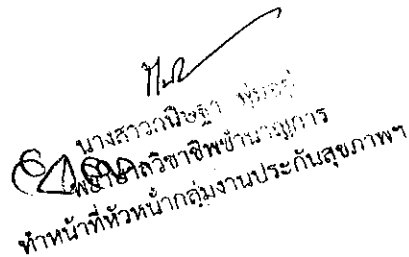 นางสาวกนิษฐา
พยาบาลวิชาชีพชำนาญการ
ทำหน้าที่หัวหน้ากลุ่มงานประกันสุขภาพฯ